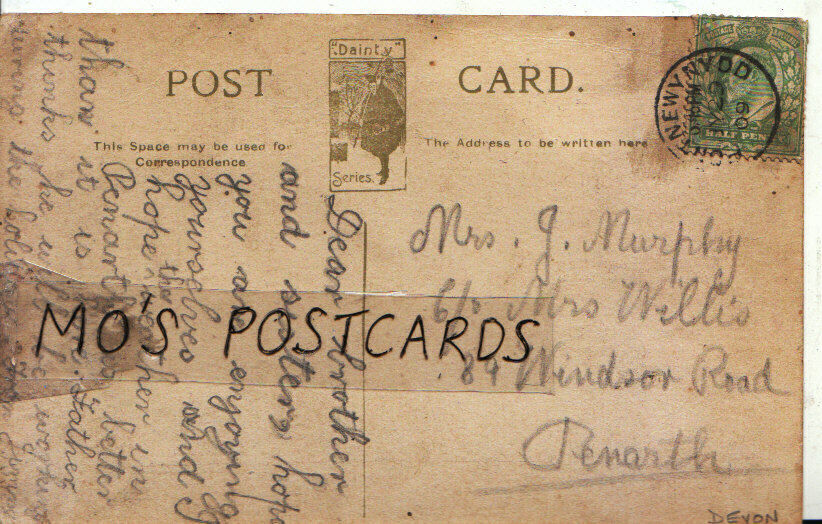 POST CARD.
"Dainty"
Series.
This Space may be used for
Correspondence
The Address to be written here
NEWYNYDD
HALF PEN
Mrs. J. Murphy
c/o Mrs Willis
84 Windsor Road
Penarth
Dear brother
and sister, hope
you are enjoying
yourselves and I
hope the weather in
Penarth is better
than it is Father
thinks he will be working
MO'S POSTCARDS
DEVON